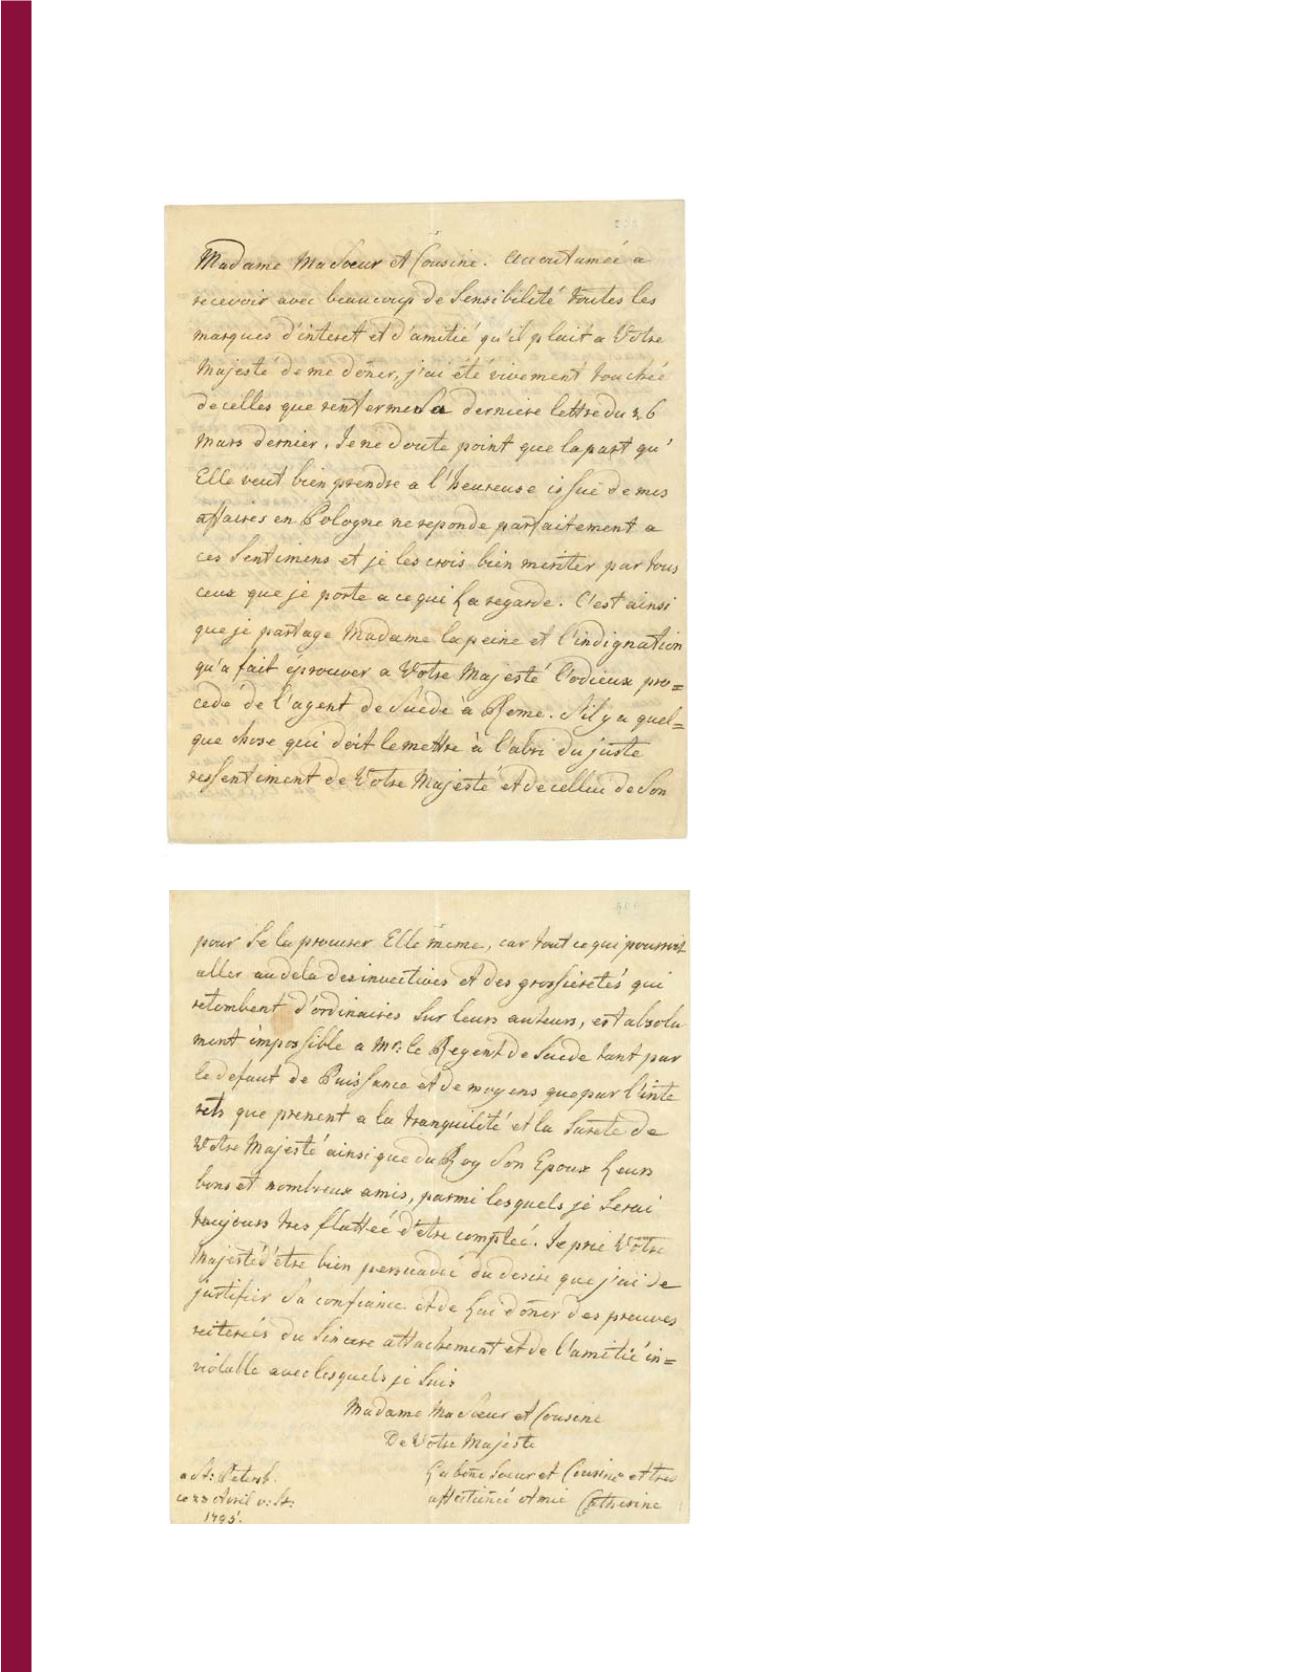 Madame Ma Soeur et Cousine. Accoutumée a
recevoir avec beaucoup de Sensibilité toutes les
marques d'interet et d'amitié qu'il plait a Votre
Majesté de me doñer, j'ai été vivement touchée
de celles que renferme Sa derniere lettre du 26
Mars dernier. Je ne doute point que la part qu'
Elle veut bien prendre a l'heureuse issue de mes
affaires en Pologne ne reponde parfaitement a
ces Sentimens et je les crois bien meriter par tous
ceux que je porte a ce qui La regarde. C'est ainsi
que je partage Madame la peine et l'indignation
qu'a fait éprouver a Votre Majesté l'odieux pro=
cedé de l'agent de Suede à Rome. S'il y a quel=
que chose qui doit le mettre à l'abri du juste
ressentiment de Votre Majesté et de cellui de Son
pour Se la procurer Elle meme, car tout ce qui pourroit
aller au dela des invectives et des grossieretés qui
retombent d'ordinaires Sur leurs auteurs, est absolu
ment impossible a Mr: le Regent de Suede tant par
le defaut de Puissance et de moyens que par l'inte
rets que prenent a la tranquilité et la Sureté de
Votre Majesté ainsi que du Roy Son Epoux Leurs
bons et nombreux amis, parmi lesquels je Serai
toujours tres flattée d'etre comptée. Je prie Votre
Majesté d'etre bien persuadée du desire que j'ai de
justifier Sa confiance et de Lui doñer des preuves
reiterées du Sincere attachement et de l'amitié in=
violable avec lesquels je Suis
Madame Ma Soeur et Cousine
De Votre Majesté
La boñe Soeur et Cousine et tres
affectioñée Amie Catherine
a St: Petersb.
ce 23 Avril v: St:
1795.